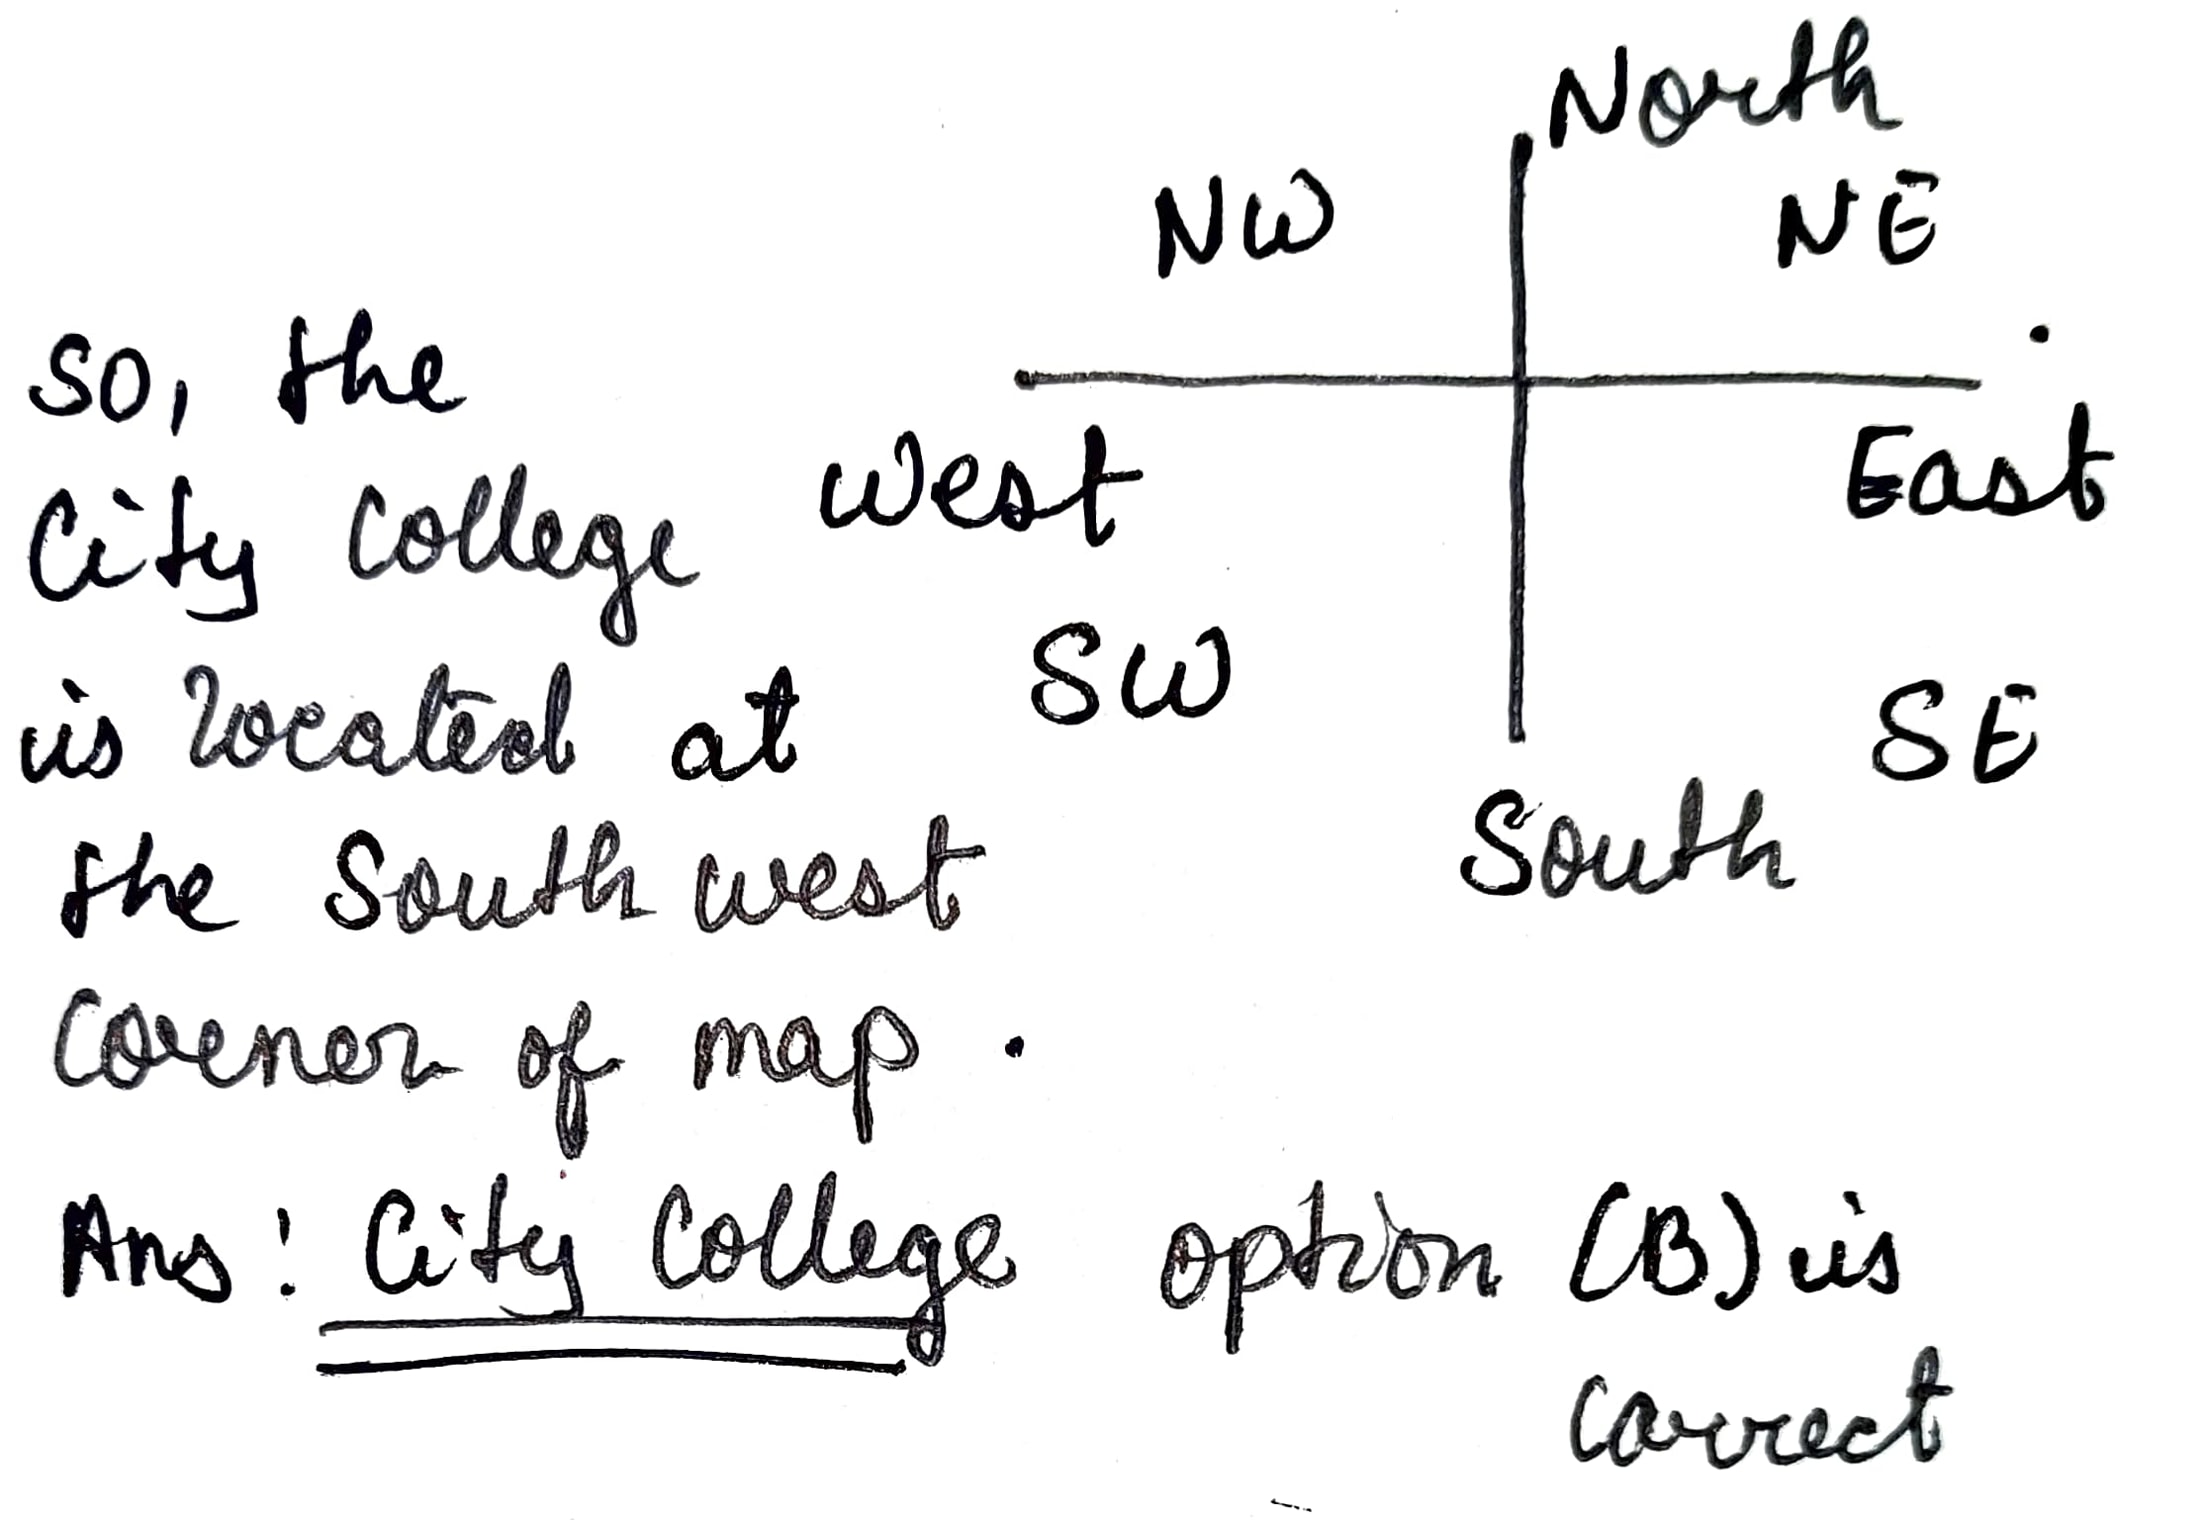 North
NW NE
West East
SW SE
South
so, the
City College
is located at
the South west
Corner of map.
Ans: City College option (B) is
correct